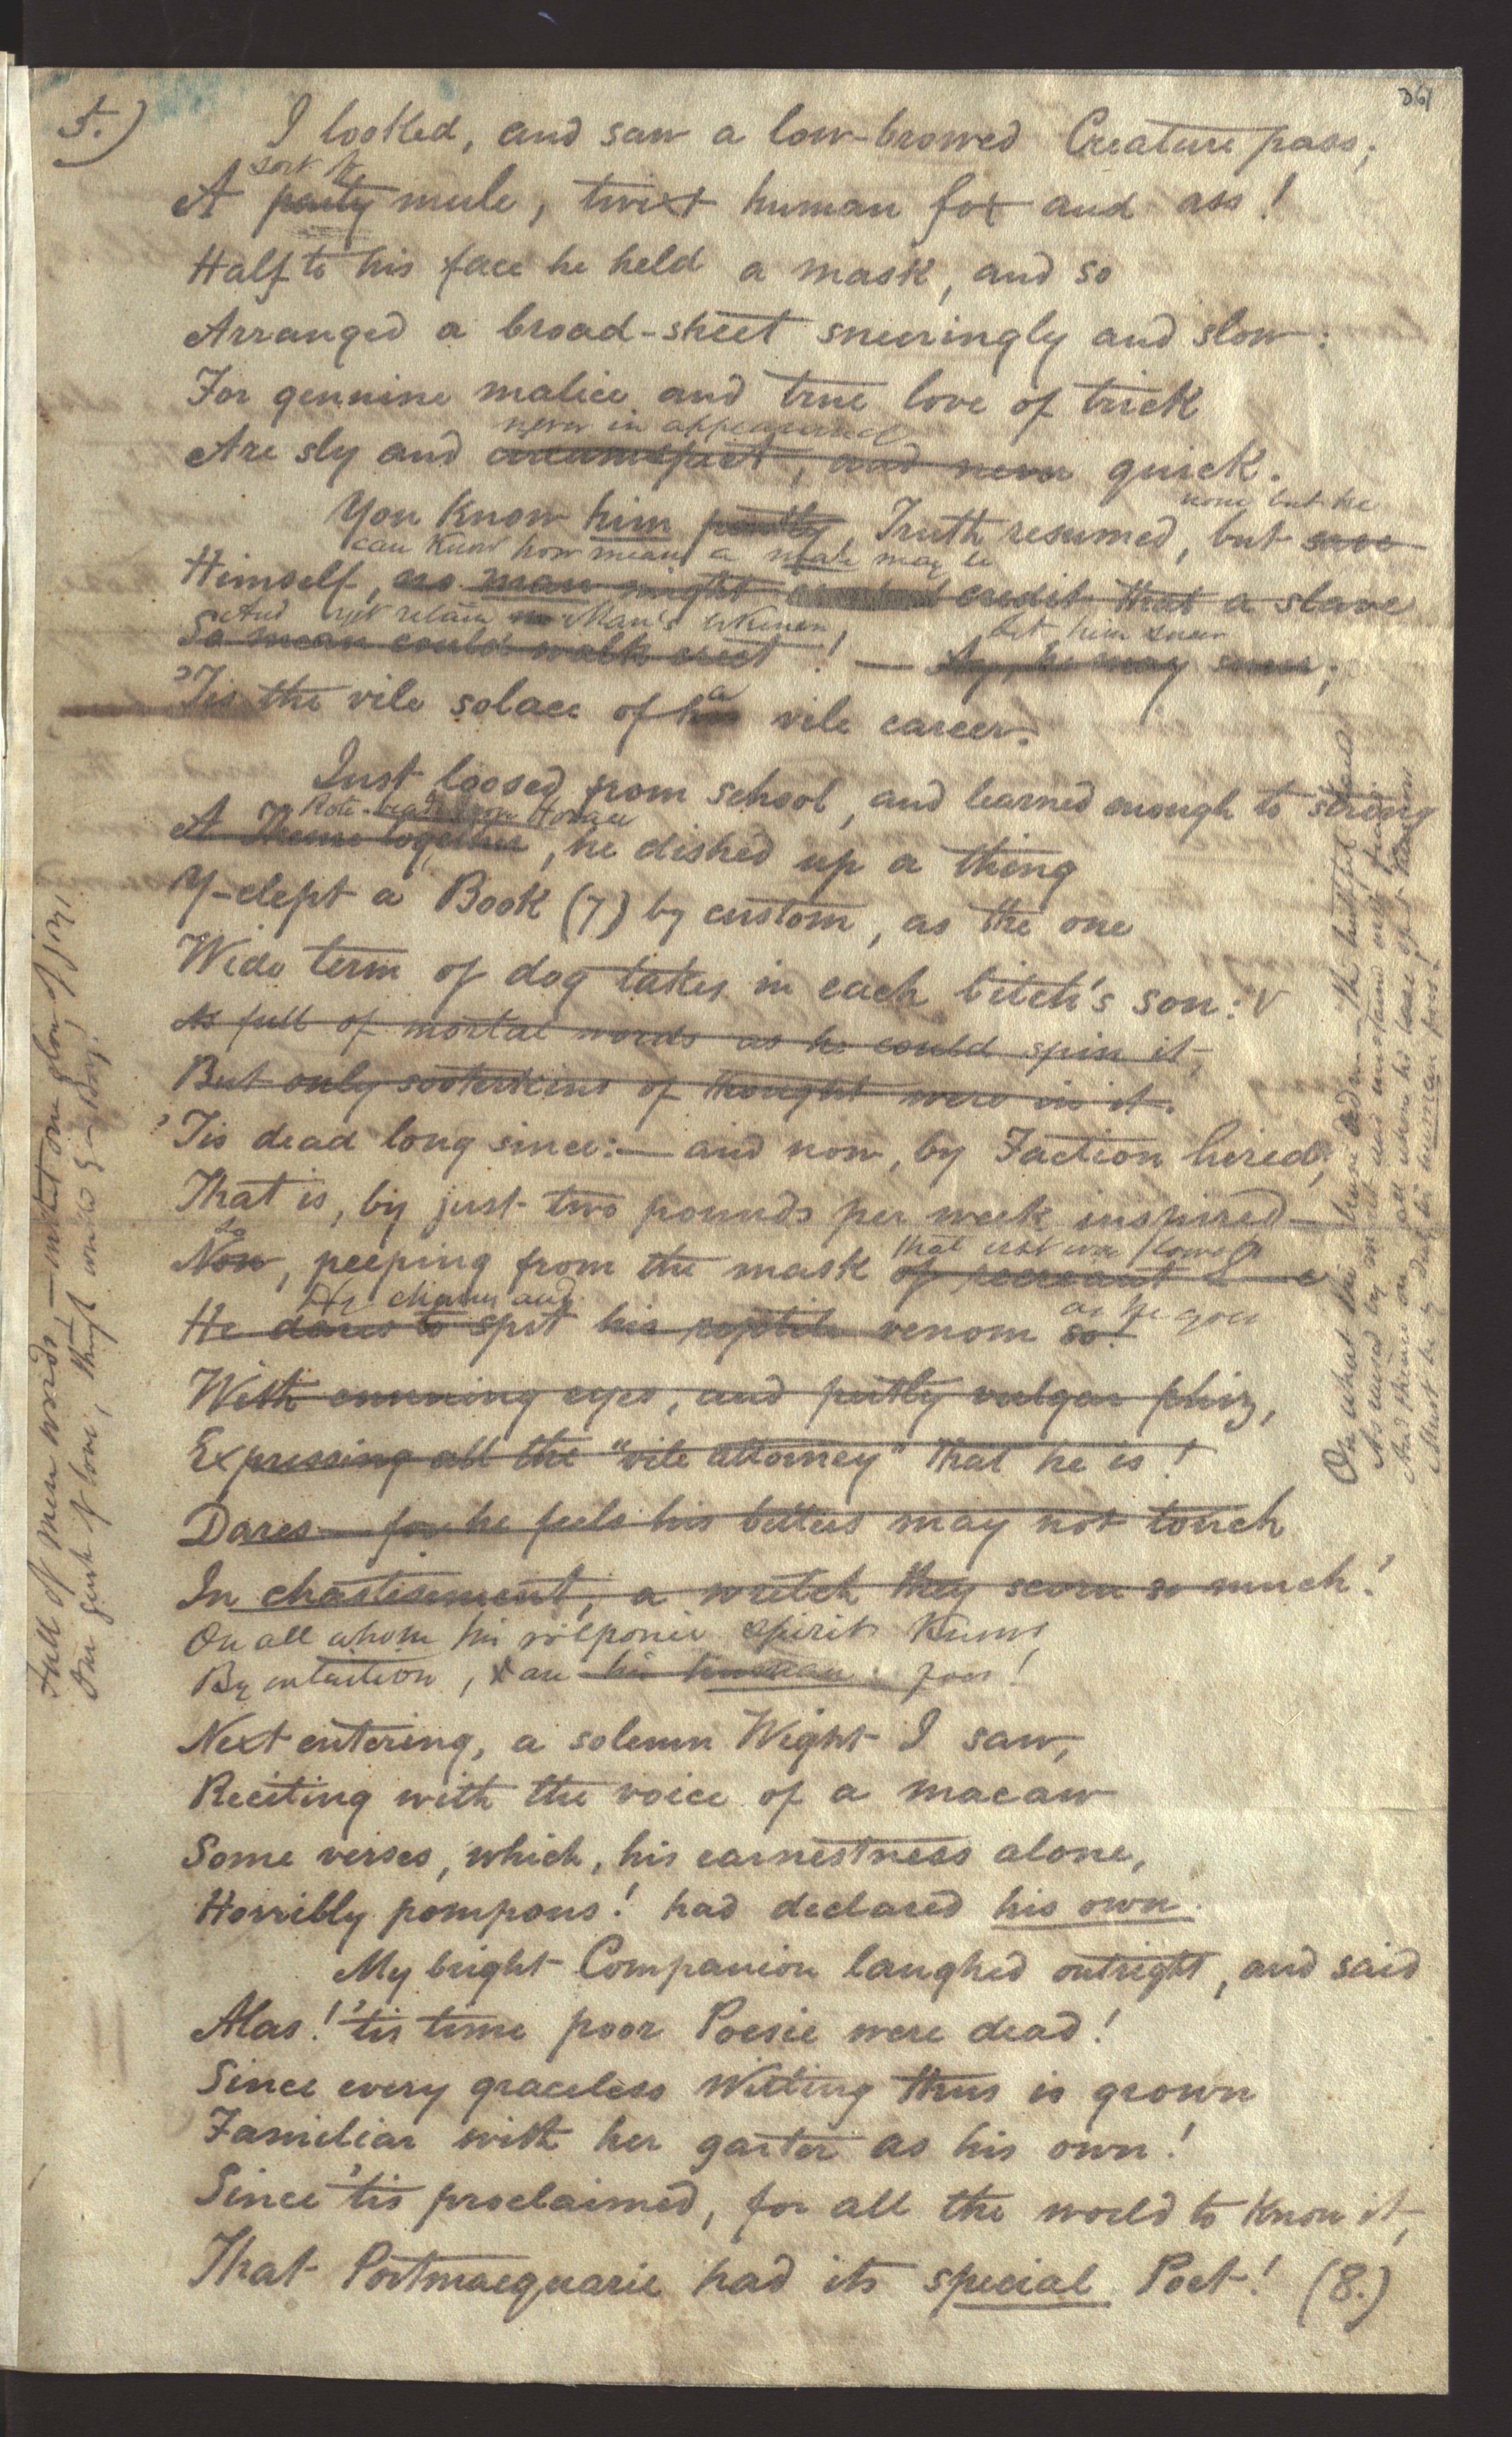 5.)
361
I looked, and saw a low-browed Creature pass;
sort of
A party mule, twixt human fox and ass!
Half to his face he held a mask, and so
Arranged a broad-sheet sneeringly and slow:
For genuine malice and true love of trick
never in appearance
Are sly and circumspect, and never quick.
none but he
You Know him partly, Truth resumed, but save
can Know how mean a male may be
Himself, no man might credit that a slave
And yet retain Man's likeness, let him sneer
So mean could walk erect! — Ay, he may sneer;
a
'Tis the vile solace of his vile career.
Just loosed from school, and learned enough to string
Rote-read from Horace
A Theme together, he dished up a thing
Y-clept a Book (7) by custom, as the one
Wide term of dog takes in each bitch's son: V
As full of mortal words as he could spin it,
But only sooterkins of thought were in it.
'Tis dead long since:— and now, by Faction hired,
That is, by just two pounds per week inspired—
So that
Now, peeping from the mask of recreant L—e
He chaws and as he goes
He dares to spit his reptile venom so.
With cunning eyes, and pertly vulgar phiz,
Expressing all the "vile attorney" that he is!
Dares—for he feels his betters may not touch
In chastisement, a wretch they scorn so much!
On all whom his volponic spirit Knows
By intuition, are his human foes!
Next entering, a solemn Wight I saw,
Reciting with the voice of a macaw
Some verses, which, his earnestness alone,
Horribly pompous! had declared his own.
My bright Companion laughed outright, and said
Alas! 'tis time poor Poesie were dead!
Since every graceless Witling thus is grown
Familiar with her garter as his own!
Since 'tis proclaimed, for all the world to Know it,
That Portmacquarie had its special Poet! (8.)
Full of mere words,—without one glow of joy,
One gush of love, that would a Boy!
On what the and the faithful
As mused by and understand
And thence on all whom his base spirit Knows
Must be by duty his human foes!